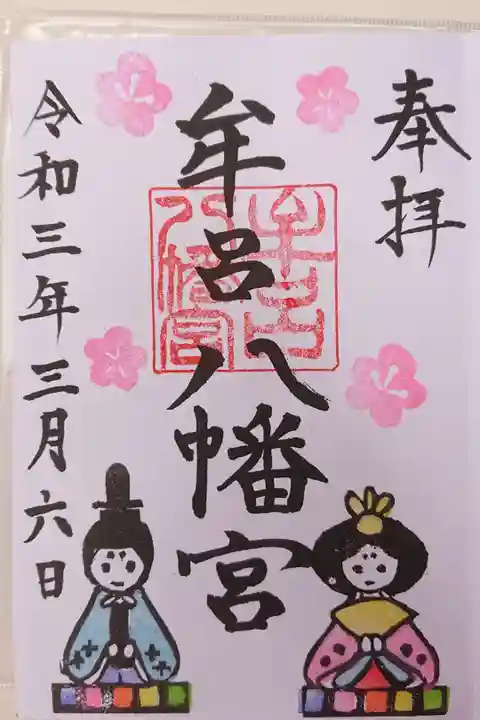 奉拝
牟呂八幡宮
令和三年三月六日
牟呂
八幡宮